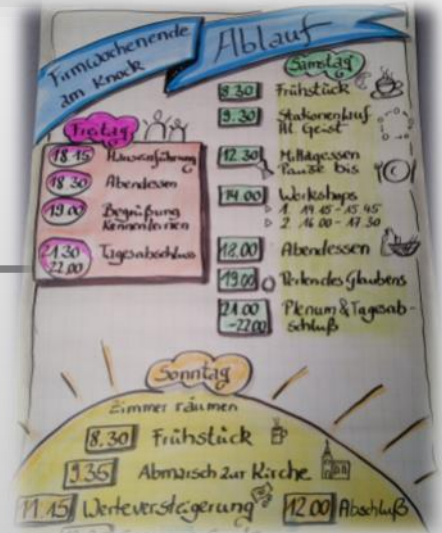 Firmwochenende
am Knock
Ablauf
Freitag
18 15 Hauseinführung
18 30 Abendessen
19.00 Begrüßung
Kennenlernen
21.30
22.00 Tagesabschluss
Samstag
8.30 Frühstück
9.30 Stationenlauf
Hl. Geist
12.30 Mittagessen
Pause bis
14.00 Workshops
1. 14 15 - 15 45
2. 16 00 - 17 30
18.00 Abendessen
19.00 Perlen des Glaubens
21.00
-22.00 Plenum & Tagesab-
schluß
Sonntag
Zimmer räumen
8.30 Frühstück
9.35 Abmarsch zur Kirche
11.15 Werteversteigerung 12.00 Abschluß